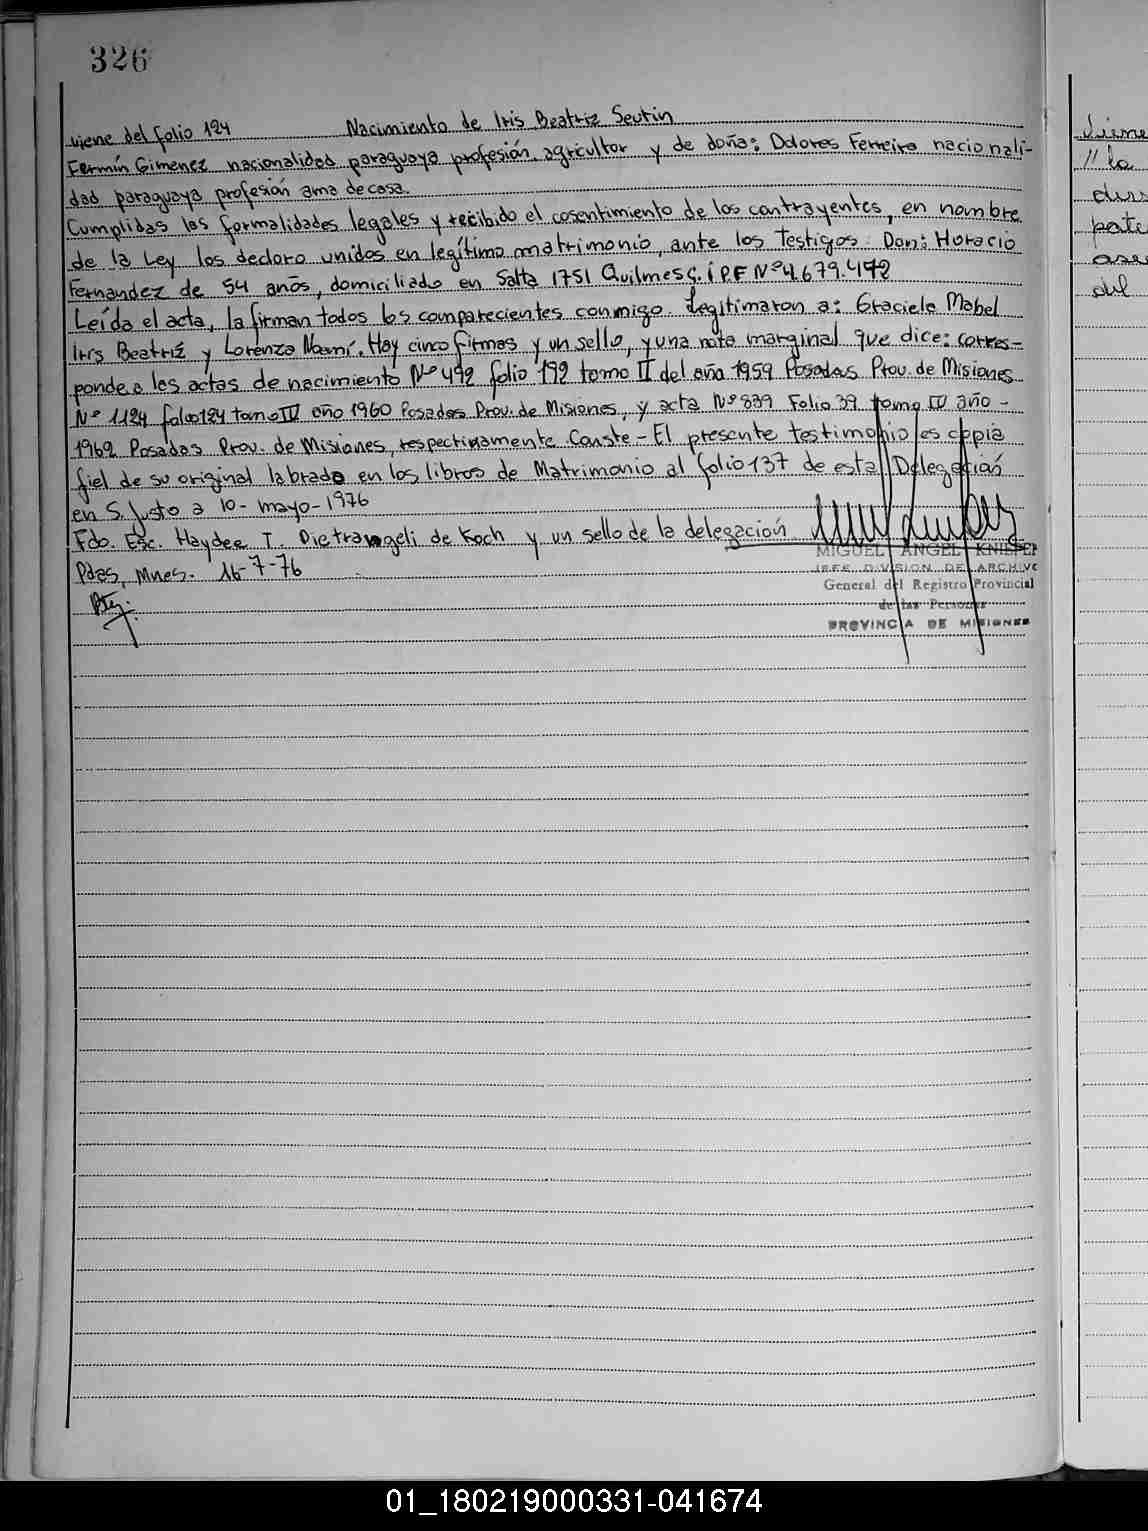 326
viene del folio 124 Nacimiento de Iris Beatriz Seutin
Fermín Gimenez nacionalidad paraguaya profesión agricultor y de doña: Dolores Ferreira nacionali-
dad paraguaya profesión ama de casa.
Cumplidas las formalidades legales y recibido el cosentimiento de los contrayentes, en nombre
de la Ley los declaro unidos en legítimo matrimonio, ante los Testigos: Don: Horacio
Fernandez de 54 años, domiciliado en Salta 1751 Quilmes C.I.P.F Nº 4.679.472
Leída el acta, la firman todos los comparecientes conmigo. Legitimaron a: Graciela Mabel
Iris Beatríz y Lorenza Noemí. Hay cinco firmas y un sello, y una nota marginal que dice: corres-
ponde a las actas de nacimiento Nº 492 folio 192 tomo II del año 1959 Posadas Prov. de Misiones
Nº 1124 folio 124 tomo IV año 1960 Posadas Prov. de Misiones, y acta Nº 839 Folio 39 tomo IV año -
1962 Posadas Prov. de Misiones, respectivamente. Conste - El presente testimonio es copia
fiel de su original labrado en los libros de Matrimonio al folio 137 de esta Delegación
en S. Justo a 10 - mayo - 1976
Fdo. Esc. Haydee T. Dietrangeli de Koch y un sello de la delegación
MIGUEL ANGEL KNIEPER
Pdas, Mnes. 16-7-76
JEFE DIVISION DE ARCHIVO
General del Registro Provincial
de las Personas
PROVINCIA DE MISIONES
Viene
// la
del
01_180219000331-041674